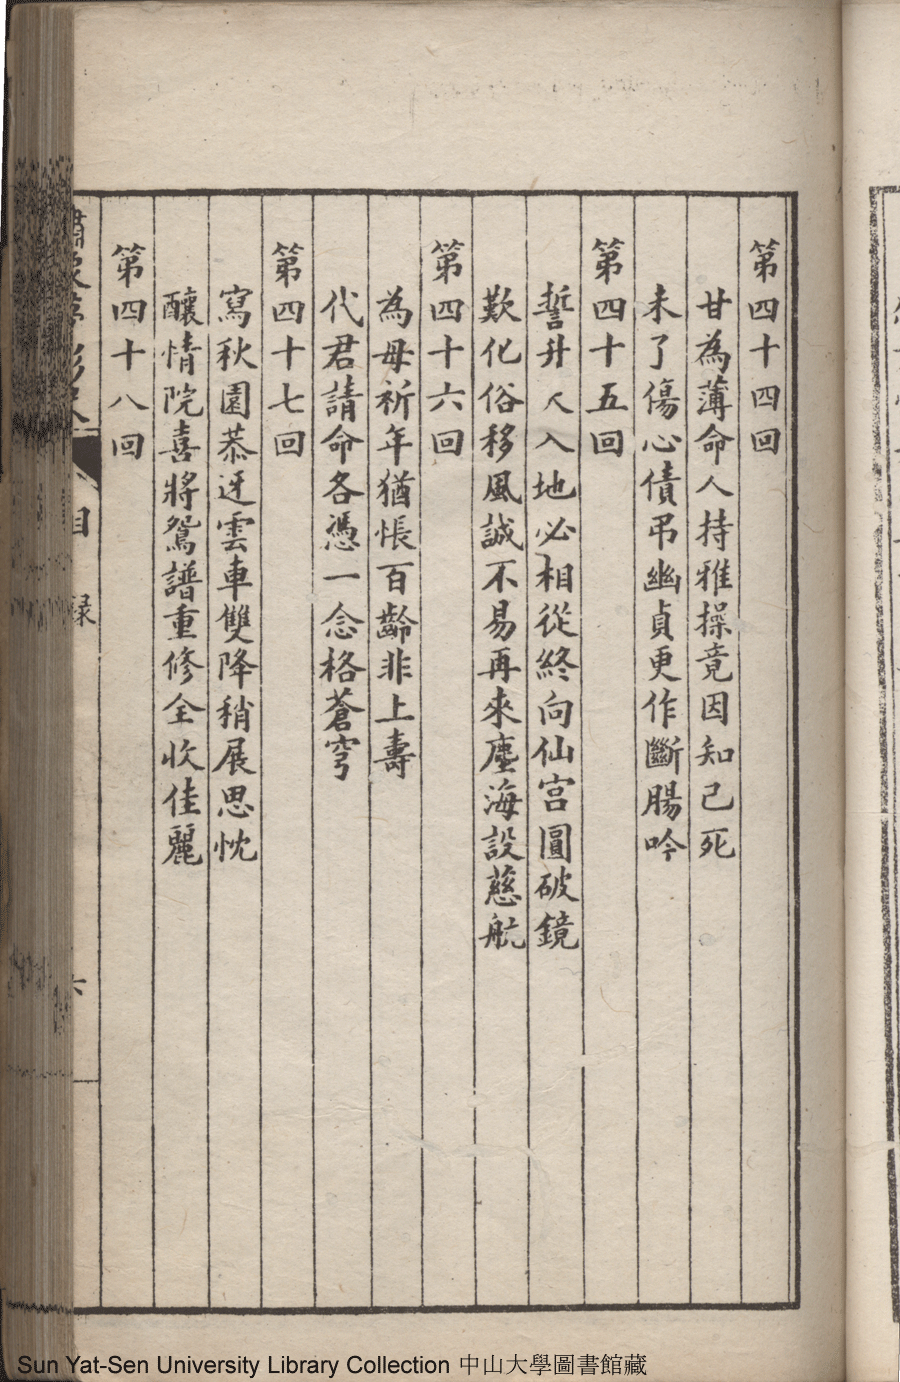 第四十四回
甘為薄命人持雅操竟因知己死
未了傷心債弔幽貞更作斷腸吟
第四十五回
誓升天入地必相從終向仙宮圓破鏡
歎化俗移風誠不易再來塵海設慈航
第四十六回
為母祈年猶悵百齡非上壽
代君請命各憑一念格蒼穹
第四十七回
寫秋園恭迓雲車雙降稍展思忱
釀情院喜將鴛譜重修全收佳麗
第四十八回
目錄
六
Sun Yat-Sen University Library Collection 中山大學圖書館藏